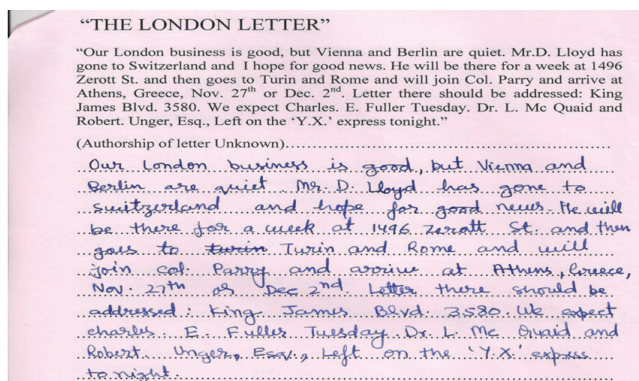 “THE LONDON LETTER”
“Our London business is good, but Vienna and Berlin are quiet. Mr.D. Lloyd has
gone to Switzerland and I hope for good news. He will be there for a week at 1496
Zerott St. and then goes to Turin and Rome and will join Col. Parry and arrive at
Athens, Greece, Nov. 27th or Dec. 2nd. Letter there should be addressed: King
James Blvd. 3580. We expect Charles. E. Fuller Tuesday. Dr. L. Mc Quaid and
Robert. Unger, Esq., Left on the ‘Y.X.’ express tonight.”
(Authorship of letter Unknown)
Our London business is good, but Vienna and
Berlin are quiet. Mr. D. Lloyd has gone to
Switzerland and hope for good news. He will
be there for a week at 1496 Zerott St. and then
goes to turin Turin and Rome and will
join col. Parry and arrive at Athens, Greece,
Nov. 27th or Dec 2nd. Letter there should be
addressed: King James Blvd. 3580. We expect
charles. E. Fuller Tuesday. Dr. L. Mc Quaid and
Robert. Unger, Esq., Left on the ‘Y.X.’ express
tonight.